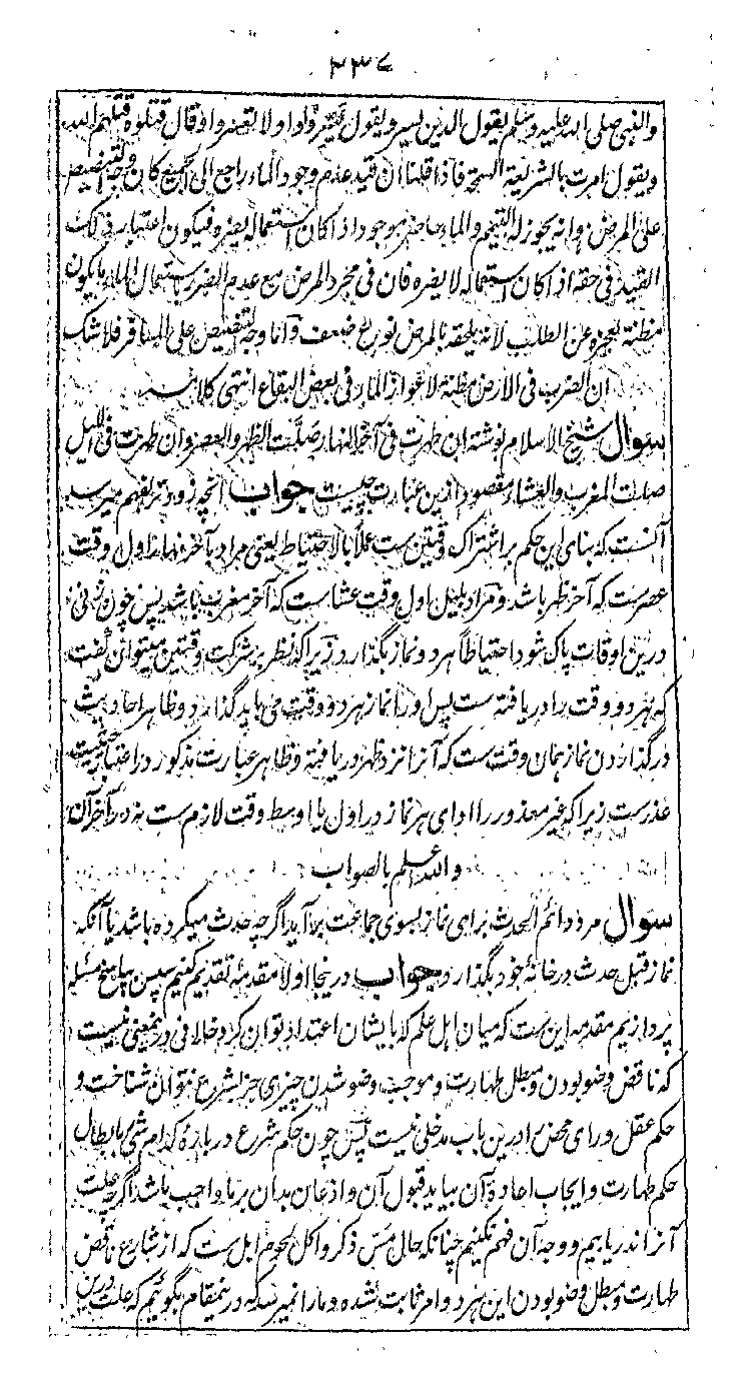 ۲۳۷
والنبی صلی الله علیه وسلم یقول الدین یسر ویقول یسروا ولا تعسروا وقال قتلوه قتلهم الله
ویقول امرت بالشریعة السمحة فاذا قلنا ان قید عدم وجود الماء راجع الی الجمیع کان وجه التنصیص
علی المرض وانه یجوز له التیمم والماء حاضر موجود اذا کان استعماله یضره فیکون اعتبار ذلک
القید فی حقه اذا کان استعماله لا یضره فان فی مجرد المرض مع عدم الضرر باستعمال الماء ما یکون
مظنة لعجزه عن الطلب لانه یلحقه بالمرض نوع ضعف واما وجه التنصیص علی المسافر فلا شک
ان الضرب فی الارض مظنة لاعواز الماء فی بعض البقاع انتهی کلامه
سوال شیخ الاسلام نوشته ان طهرت فی آخر النهار صلت الظهر والعصر وان طهرت فی اللیل
صلت المغرب والعشاء مقصود ازین عبارت چیست جواب آنچه زودتر بفهم میرسد
آنست که بنای این حکم بر اشتراک وقتین ست عملاً بالاحتیاط یعنی مراد بآخر نهار اول وقت
عصرست که آخر ظهر باشد ومراد بلیل اول وقت عشاست که آخر مغرب باشد پس چون زنی
درین اوقات پاک شود احتیاطاً هر دو نماز بگذارد زیرا که نظر بشرکت وقتین میتوان گفت
که هر دو وقت را دریافته ست پس او را نماز هر دو وقت می باید گذارد وظاهر احادیث
در گذاردن نماز همان وقت ست که آنرا نزد طهر دریافته وظاهر عبارت مذکور در اعتبار حیثیت
عذرست زیرا که غیر معذور را ادای هر نماز در اول یا اوسط وقت لازم ست نه در آخر آن
والله اعلم بالصواب
سوال مرد دائم الحدث برای نماز بسوی جماعت برآید اگرچه حدث میکرده باشد یا آنکه
نماز قبل حدث در خانه خود بگذارد جواب درینجا اولا مقدمه تقدیم کنیم سپس بپاسخ مسئله
پردازیم مقدمه این ست که میان اهل علم که بایشان اعتداد توان کرد خلافی درینمعنی نیست
که ناقض وضو بودن ومبطل طهارت وموجب وضو شدن چیزی جز بشرع نتوان شناخت و
حکم عقل ورای محض را درین باب مدخلی نیست پس چون حکم شرع درباره کدام شی بابطال
حکم طهارت وایجاب اعاده آن بیاید قبول آن واذعان بدان بر ما واجب باشد اگرچه علت
آنرا ندریابیم ووجه آن فهم نکنیم چنانکه حال مس ذکر واکل لحوم ابل ست که از شارع ناقض
طهارت ومبطل وضو بودن این هر دو امر ثابت شده وما را نمیرسد که درینمقام بگوئیم که علت درین